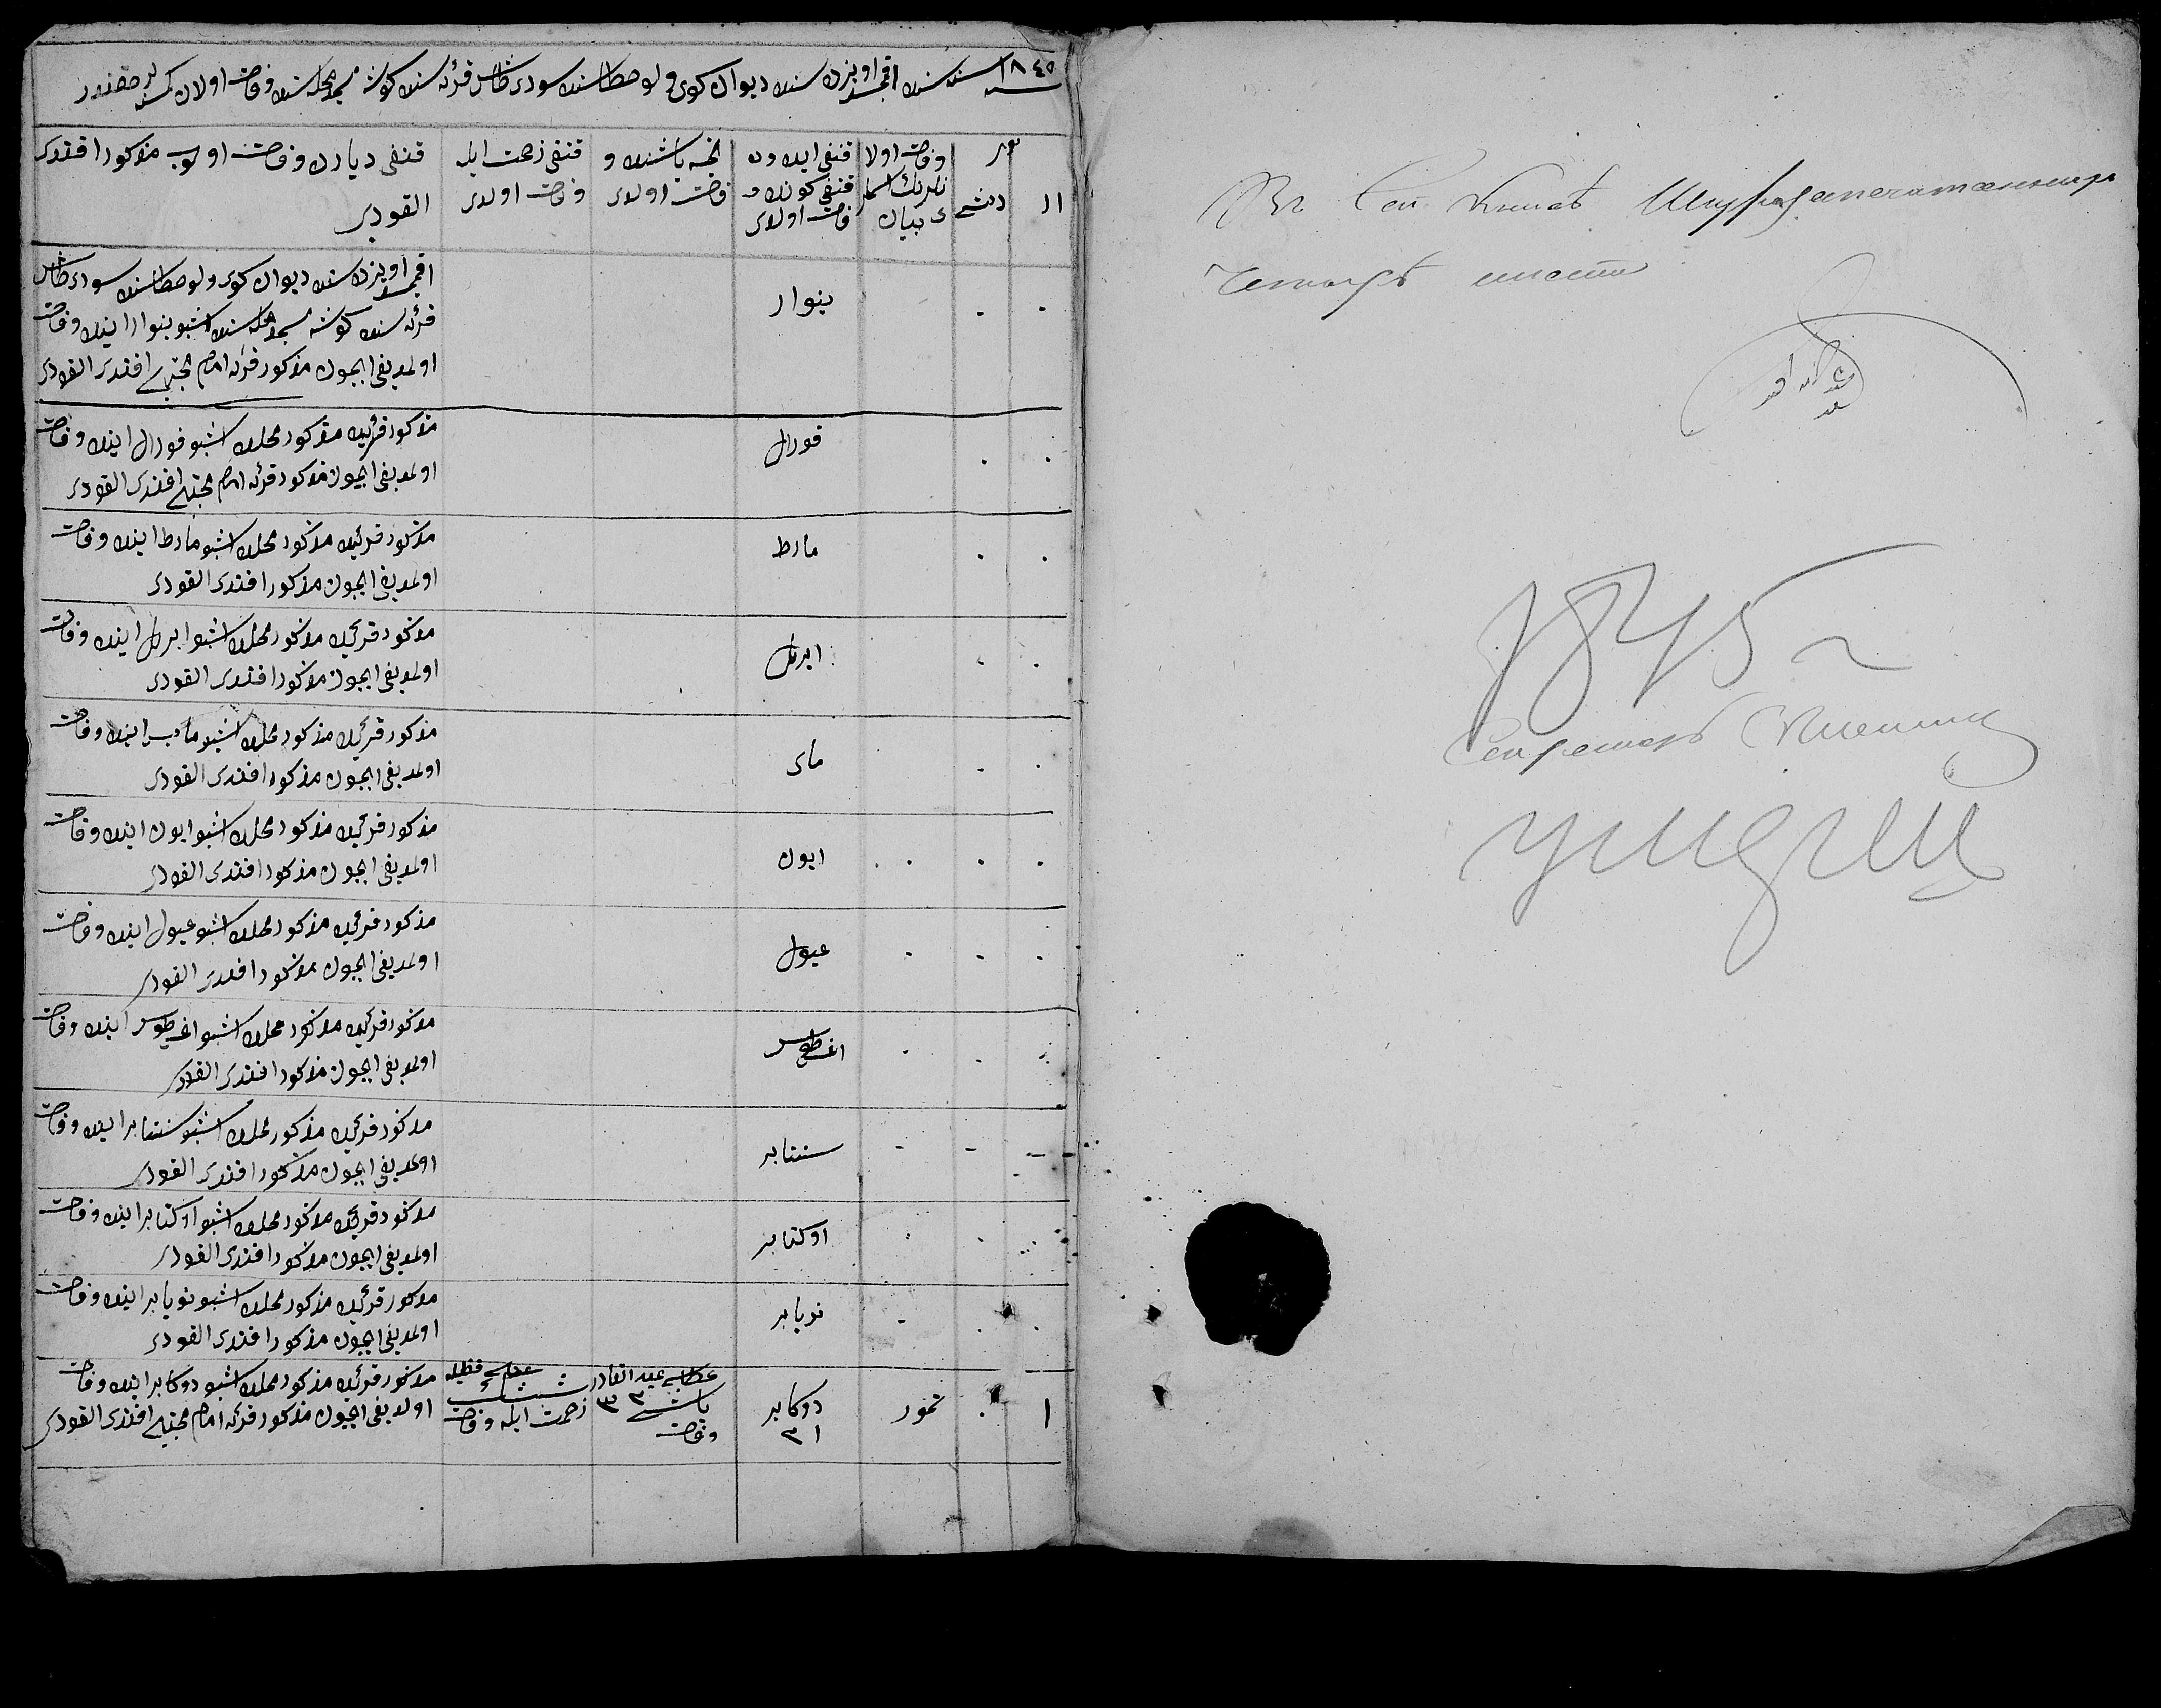 ١٨٤٥ سنه سنده اقمسجد اویزدن سنده دیوان کوی ولوصطا سنده سودی طاش قریه سنده کوشه مسجد محله سنده وفات اولان کمسنه لر
ار
دشی
وفات اولا
نلرنك اسملر
ی بیان
قنغی ایده و
قنغی کونده و
فات اولدی
نچه یاشنده و
فات اولدی
قنغی زحمت ایله
وفات اولدی
قنغی دیارده وفات اولوب مذکور افندی
القودی
ینوار
اقمسجد اویزدن سنده دیوان کوی ولوصطا سنده سودی طاش
قریه سنده کوشه مسجد محله سنده اشبو ینوار اینده وفات
اولمدیغی ایچون مذکور قریه امام مجتبی افندی القودی
فورال
مذکور قریه‌ده مذکور محله‌ده اشبو فورال اینده وفات
اولمدیغی ایچون مذکور قریه امام مجتبی افندی القودی
مارط
مذکور قریه‌ده مذکور محله‌ده اشبو مارط اینده وفات
اولمدیغی ایچون مذکور افندی القودی
ابریل
مذکور قریه‌ده مذکور محله‌ده اشبو ابریل اینده وفات
اولمدیغی ایچون مذکور افندی القودی
مای
مذکور قریه‌ده مذکور محله‌ده اشبو مایس اینده وفات
اولمدیغی ایچون مذکور افندی القودی
ایون
مذکور قریه‌ده مذکور محله‌ده اشبو ایون اینده وفات
اولمدیغی ایچون مذکور افندی القودی
عیول
مذکور قریه‌ده مذکور محله‌ده اشبو عیول اینده وفات
اولمدیغی ایچون مذکور افندی القودی
اغسطوس
مذکور قریه‌ده مذکور محله‌ده اشبو اغسطوس اینده وفات
اولمدیغی ایچون مذکور افندی القودی
سنتابر
مذکور قریه‌ده مذکور محله‌ده اشبو سنتابر اینده وفات
اولمدیغی ایچون مذکور افندی القودی
اوکتابر
مذکور قریه‌ده مذکور محله‌ده اشبو اوکتابر اینده وفات
اولمدیغی ایچون مذکور افندی القودی
نویابر
مذکور قریه‌ده مذکور محله‌ده اشبو نویابر اینده وفات
اولمدیغی ایچون مذکور افندی القودی
١
تمور
دوکابر
٣١
عبد القادر
یاشی ٣٣
وفات
زحمت ایله وفات
مذکور قریه‌ده مذکور محله‌ده اشبو دوکابر اینده وفات
اولدیغی ایچون مذکور قریه امام مجتبی افندی القودی
Въ сей книгѣ Шнурозапечатанныхъ
Четыре листа
1845 г
Секретарь